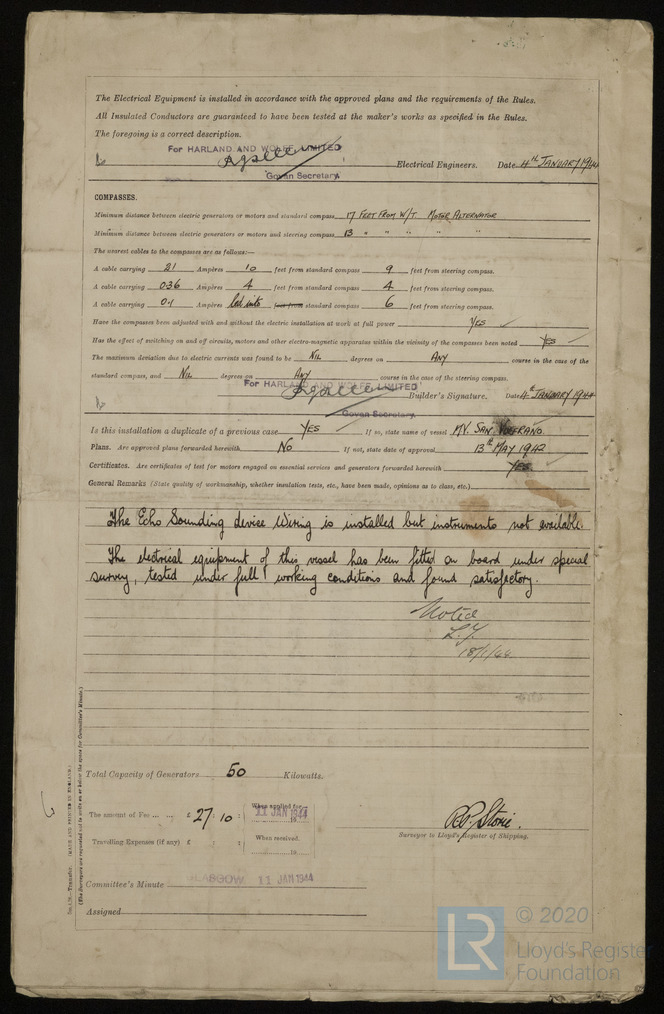 The Electrical Equipment is installed in accordance with the approved plans and the requirements of the Rules.
All Insulated Conductors are guaranteed to have been tested at the maker's works as specified in the Rules.
The foregoing is a correct description.
For HARLAND AND WOLFF LIMITED
Electrical Engineers. Date 4TH JANUARY 1944
Govan Secretary.
COMPASSES.
Minimum distance between electric generators or motors and standard compass 17 FEET FROM W/T MOTOR ALTERNATOR
Minimum distance between electric generators or motors and steering compass 13 " " " " "
The nearest cables to the compasses are as follows:—
A cable carrying 21 Ampères 10 feet from standard compass 9 feet from steering compass.
A cable carrying 036 Ampères 4 feet from standard compass 4 feet from steering compass.
A cable carrying 0.1 Ampères led into feet from standard compass 6 feet from steering compass.
Have the compasses been adjusted with and without the electric installation at work at full power YES
Has the effect of switching on and off circuits, motors and other electro-magnetic apparatus within the vicinity of the compasses been noted YES
The maximum deviation due to electric currents was found to be NIL degrees on ANY course in the case of the
standard compass, and NIL degrees on ANY course in the case of the steering compass.
For HARLAND AND WOLFF LIMITED
Builder's Signature. Date 4TH JANUARY 1944
Govan Secretary.
Is this installation a duplicate of a previous case YES If so, state name of vessel MV. SAN
Plans. Are approved plans forwarded herewith NO If not, state date of approval 13TH MAY 1942
Certificates. Are certificates of test for motors engaged on essential services and generators forwarded herewith YES
General Remarks (State quality of workmanship, whether insulation tests, etc., have been made, opinions as to class, etc.)
The Echo Sounding device Wiring is installed but instruments not available.
The electrical equipment of this vessel has been fitted on board under special
survey, tested under full working conditions and found satisfactory.
Noted
18/1/44
Total Capacity of Generators 50 Kilowatts.
The amount of Fee ... ... £ 27 : 10 : When applied for
11 JAN 1944
Travelling Expenses (if any) £ : : When received.
19
R.P. Storie.
Surveyor to Lloyd's Register of Shipping.
Committee's Minute GLASGOW 11 JAN 1944
Assigned
(MADE AND PRINTED IN ENGLAND.)
(The Surveyors are requested not to write on or below the space for Committee's Minute.)
LR © 2020
Lloyd's Register
Foundation